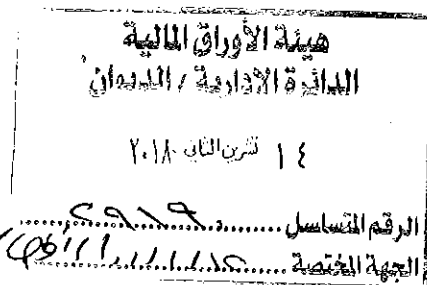 هيئة الأوراق المالية
الدائرة الادارية / الديوان
١٤ تشرين الثاني ٢٠١٨
الرقم المتسلسل
الجهة المختصة